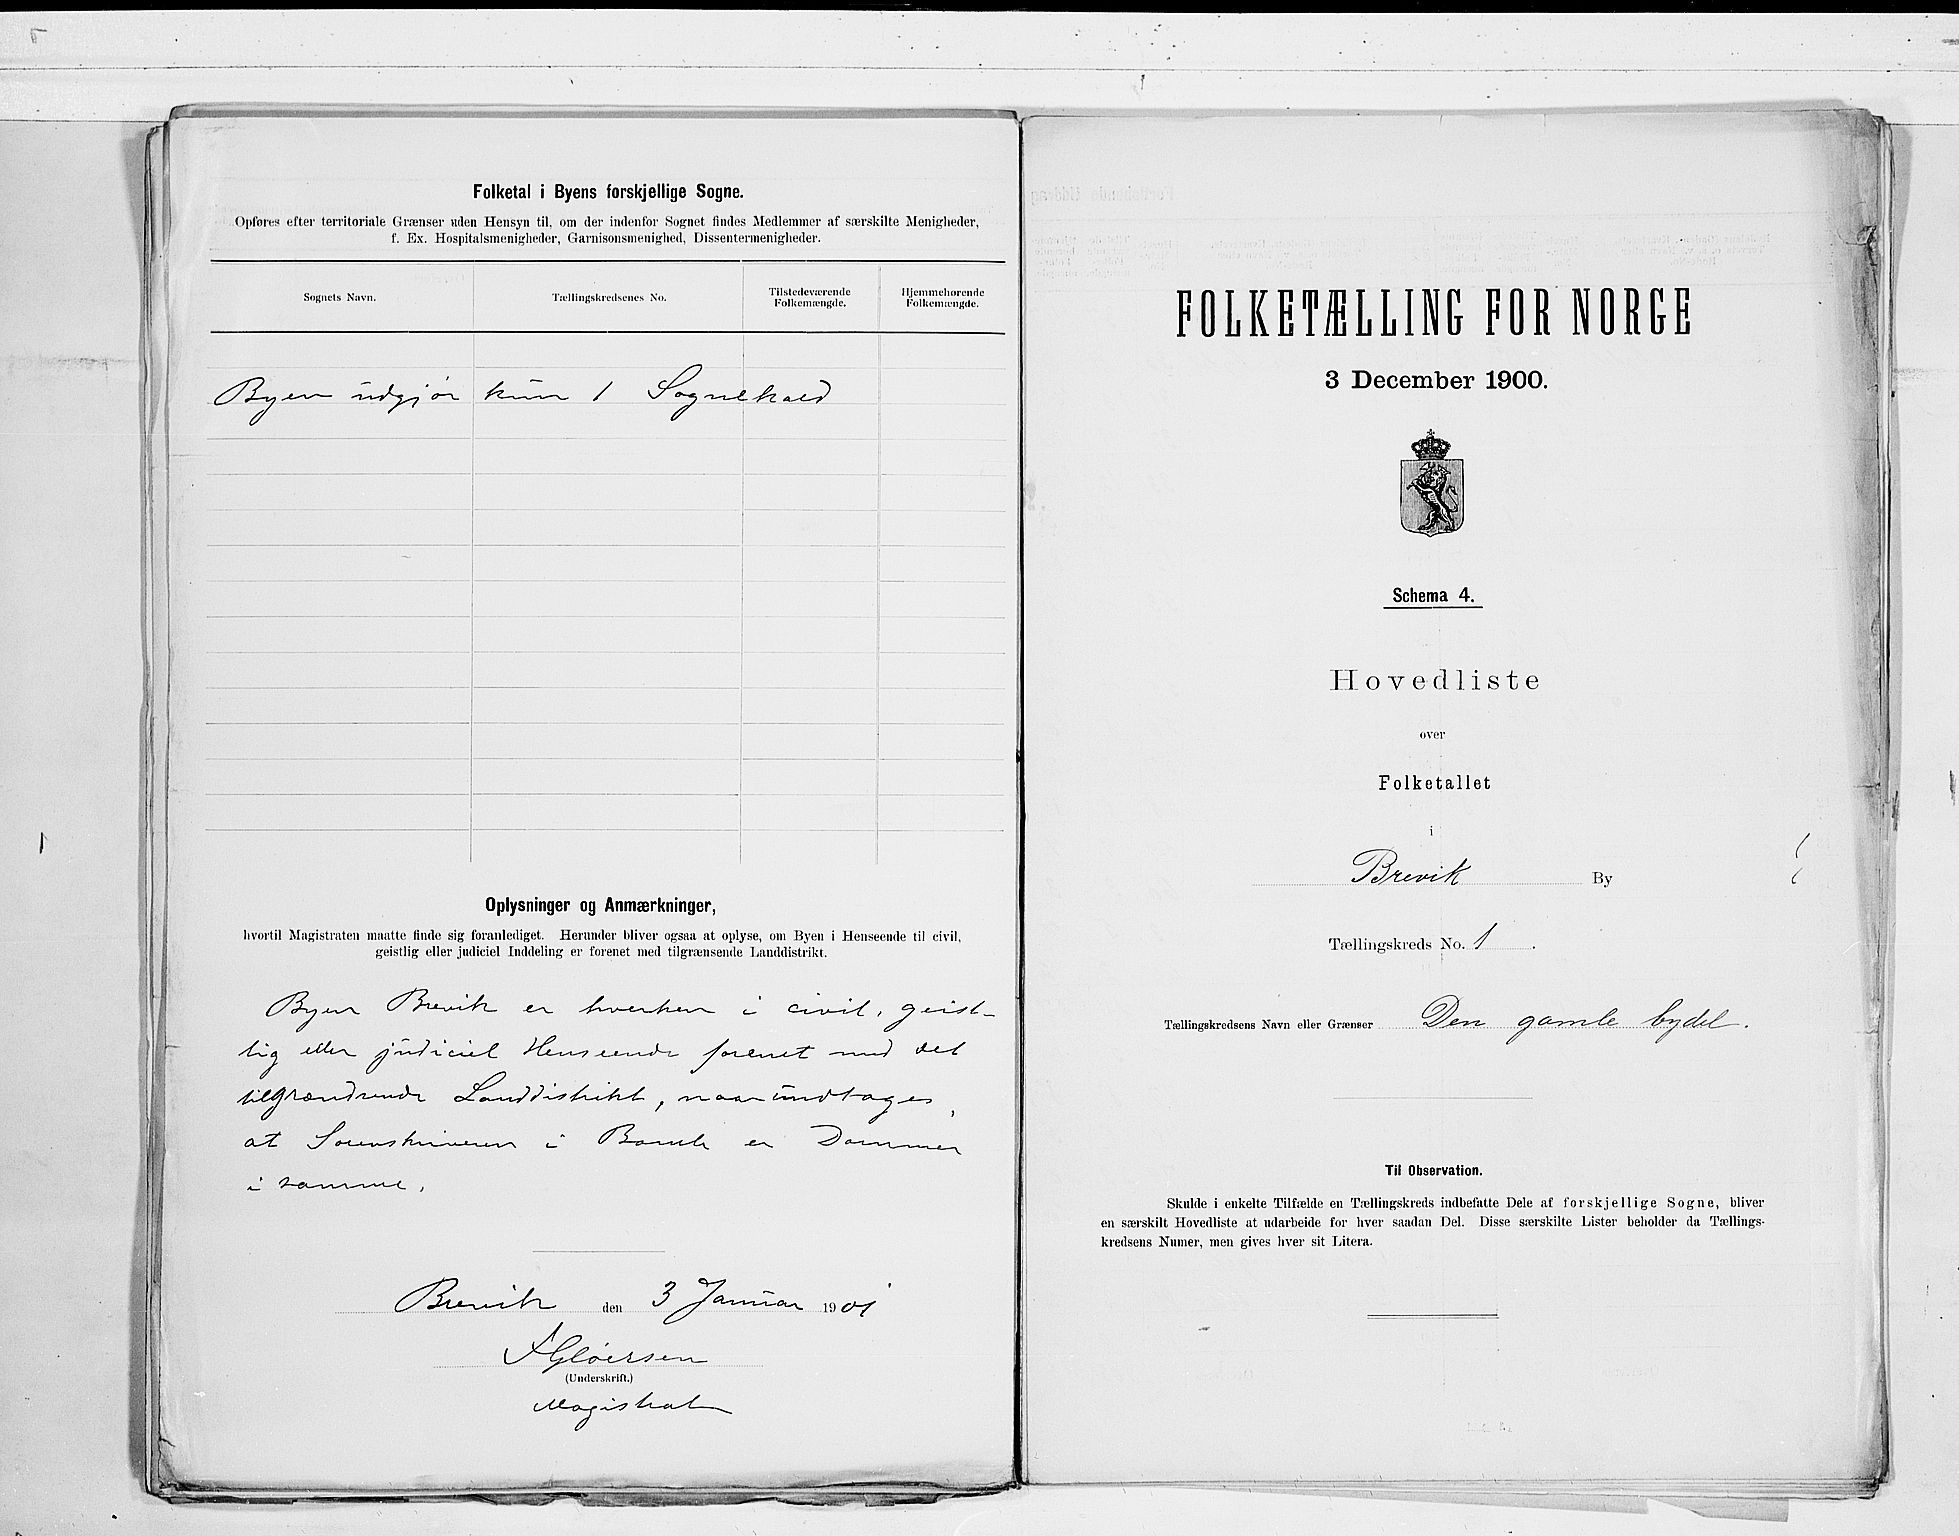 Folketal i Byens forskjellige Sogne.
Opføres efter territoriale Grænser uden Hensyn til, om der indenfor Sognet findes Medlemmer af særskilte Menigheder,
f. Ex. Hospitalsmenigheder, Garnisonsmenighed, Dissentermenigheder.
Sognets Navn.
Tællingskredsenes No.
Tilstedeværende
Folkemængde.
Hjemmehørende
Folkemængde.
Byen udgjør kun 1 Sognekald
Oplysninger og Anmærkninger,
hvortil Magistraten maatte finde sig foranlediget. Herunder bliver ogsaa at oplyse, om Byen i Henseende til civil,
geistlig eller judiciel Inddeling er forenet med tilgrænsende Landdistrikt.
Byen Brevik er hverken i civil, geist-
lig eller judiciel Henseende forenet med det
tilgrændsende Landdistrikt, naar undtages,
at Sorenskriveren i Bamle er Dommer
i samme.
Brevik den 3 Januar 1901
Gløersen
(Underskrift.)
Magistrat
FOLKETÆLLING FOR NORGE
3 December 1900.
Schema 4.
Hovedliste
over
Folketallet
i
Brevik By
Tællingskreds No. 1.
Tællingskredsens Navn eller Grænser Den gamle bydel.
Til Observation.
Skulde i enkelte Tilfælde en Tællingskreds indbefatte Dele af forskjellige Sogne, bliver
en særskilt Hovedliste at udarbeide for hver saadan Del. Disse særskilte Lister beholder da Tællings-
kredsens Numer, men gives hver sit Litera.